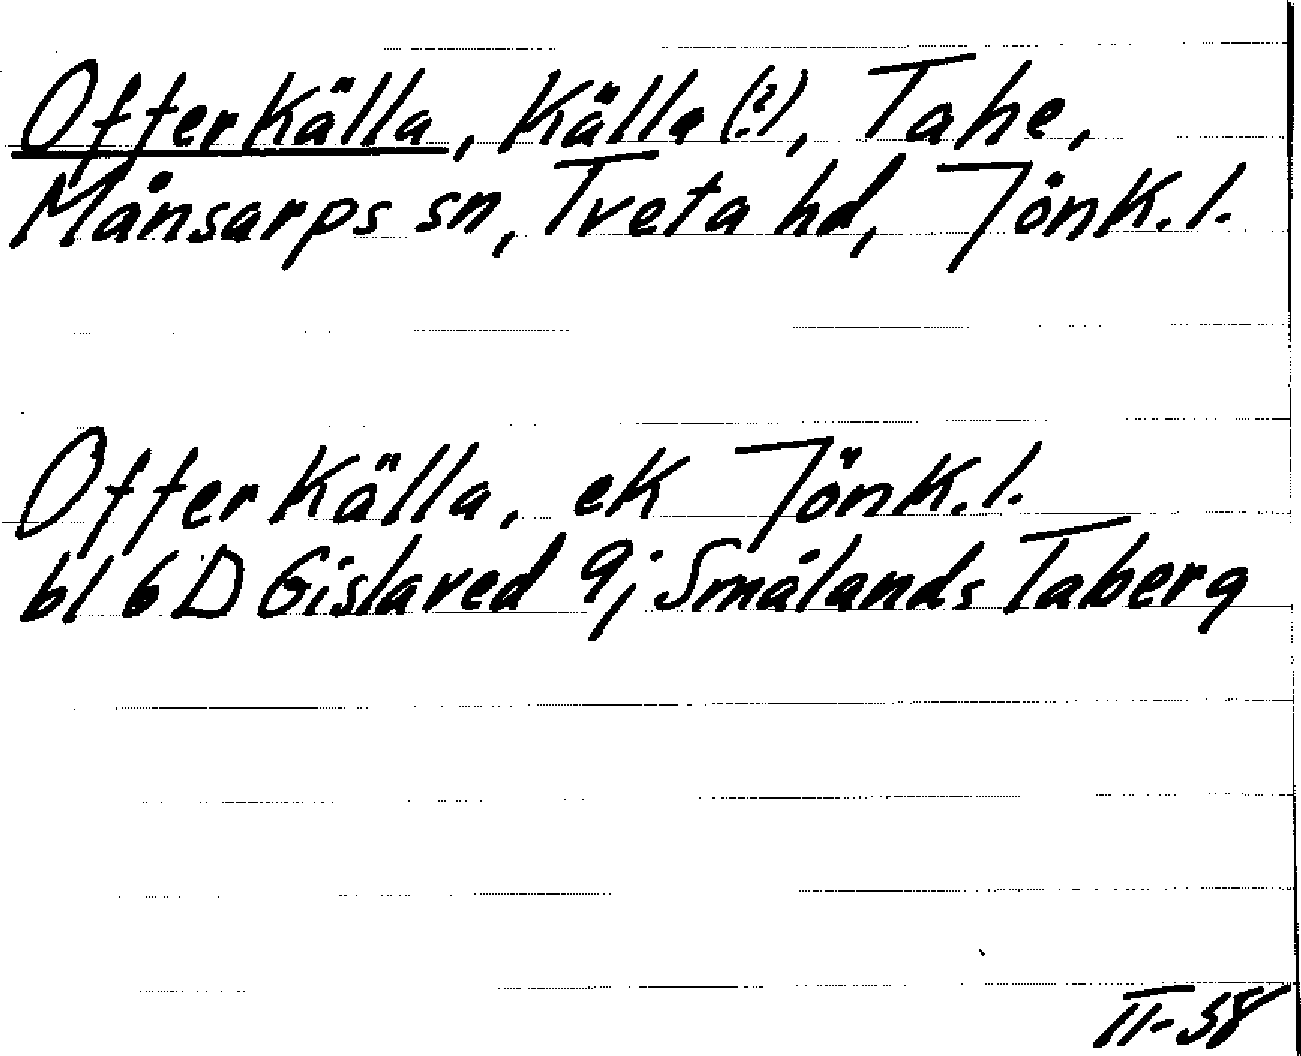 Offerkälla, Källa (?), Tahe,
Månsarps sn, Tveta hd, Jönk. l.
Offerkälla, ek Jönk. l.
bl 6 D Gislaved 9j Smålands Taberg
II-58